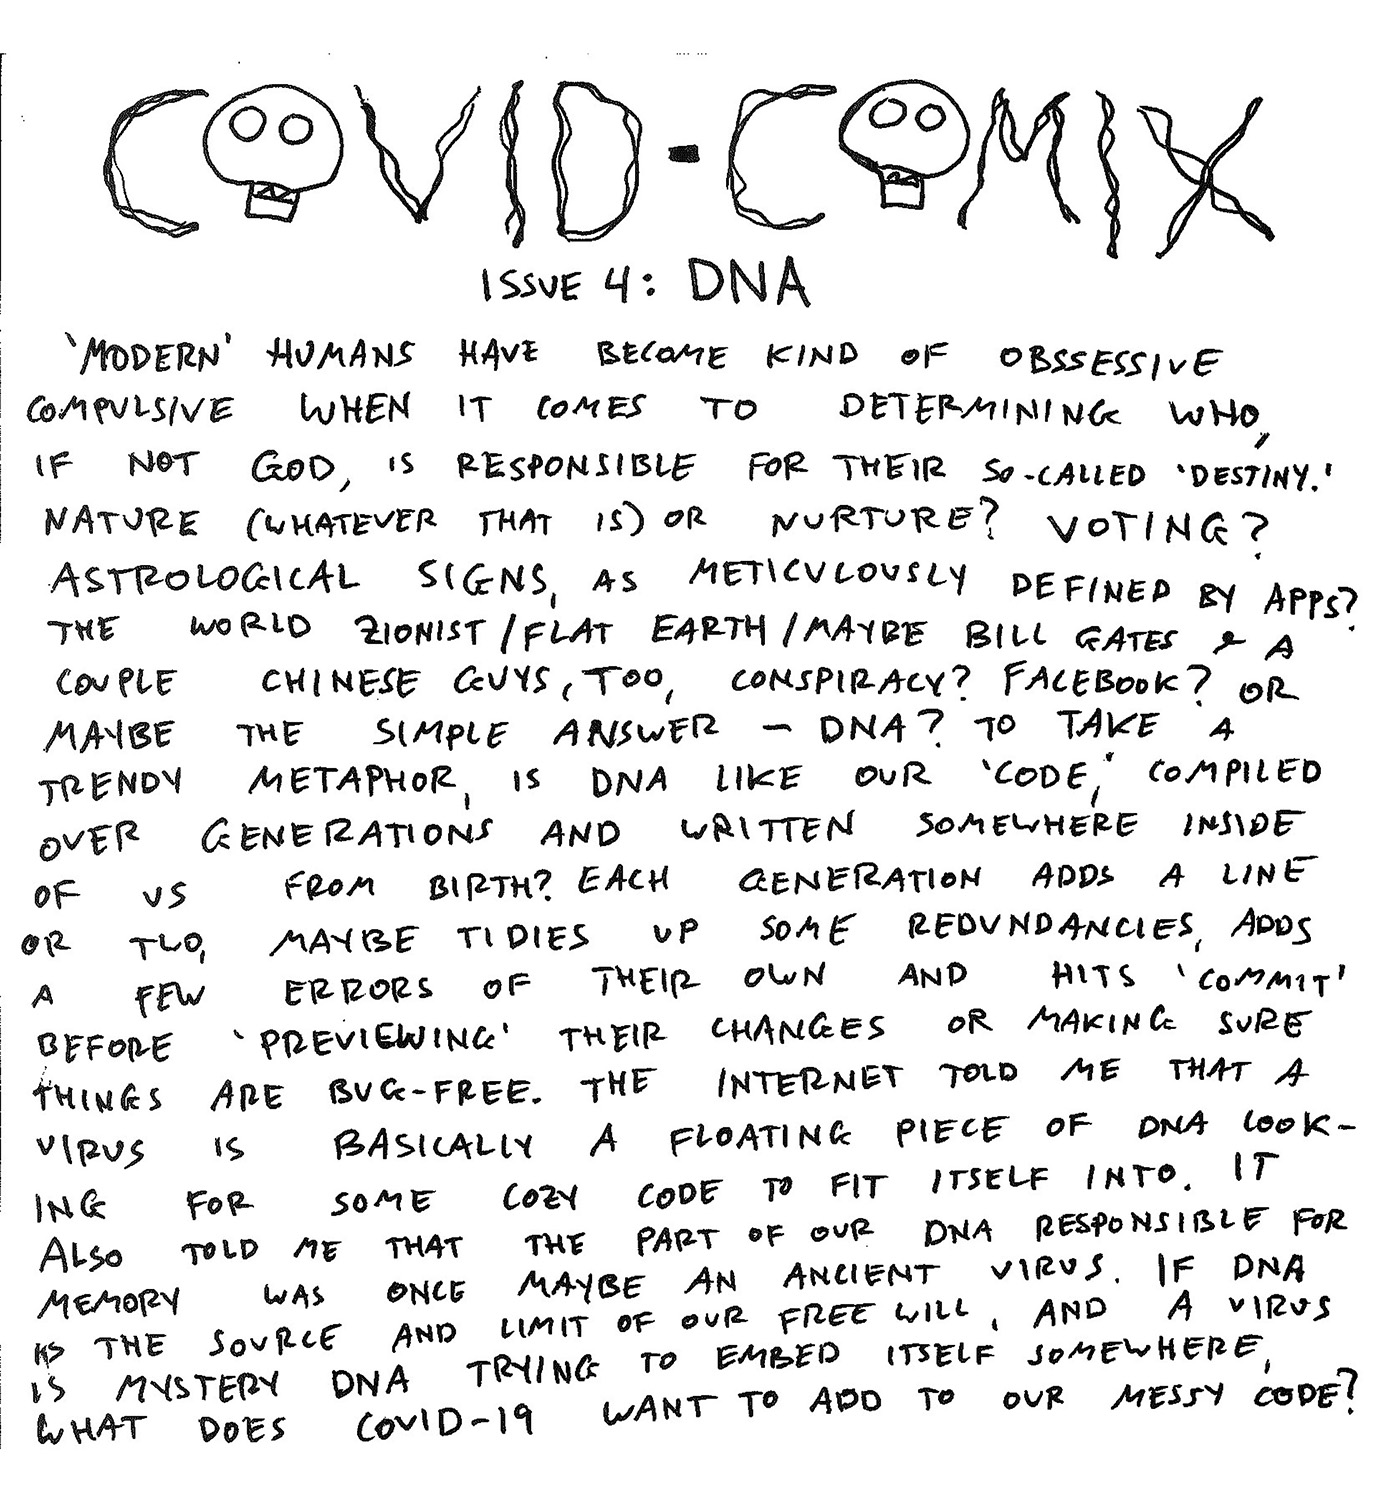 COVID-COMIX
ISSUE 4: DNA
'MODERN' HUMANS HAVE BECOME KIND OF OBSSESSIVE
COMPULSIVE WHEN IT COMES TO DETERMINING WHO,
IF NOT GOD, IS RESPONSIBLE FOR THEIR SO-CALLED 'DESTINY.'
NATURE (WHATEVER THAT IS) OR NURTURE? VOTING?
ASTROLOGICAL SIGNS, AS METICULOUSLY DEFINED BY APPS?
THE WORLD ZIONIST/FLAT EARTH/MAYBE BILL GATES & A
COUPLE CHINESE GUYS, TOO, CONSPIRACY? FACEBOOK? OR
MAYBE THE SIMPLE ANSWER - DNA? TO TAKE A
TRENDY METAPHOR, IS DNA LIKE OUR 'CODE,' COMPILED
OVER GENERATIONS AND WRITTEN SOMEWHERE INSIDE
OF US FROM BIRTH? EACH GENERATION ADDS A LINE
OR TWO, MAYBE TIDIES UP SOME REDUNDANCIES, ADDS
A FEW ERRORS OF THEIR OWN AND HITS 'COMMIT'
BEFORE 'PREVIEWING' THEIR CHANGES OR MAKING SURE
THINGS ARE BUG-FREE. THE INTERNET TOLD ME THAT A
VIRUS IS BASICALLY A FLOATING PIECE OF DNA LOOK-
ING FOR SOME COZY CODE TO FIT ITSELF INTO. IT
ALSO TOLD ME THAT THE PART OF OUR DNA RESPONSIBLE FOR
MEMORY WAS ONCE MAYBE AN ANCIENT VIRUS. IF DNA
IS THE SOURCE AND LIMIT OF OUR FREE WILL, AND A VIRUS
IS MYSTERY DNA TRYING TO EMBED ITSELF SOMEWHERE,
WHAT DOES COVID-19 WANT TO ADD TO OUR MESSY CODE?